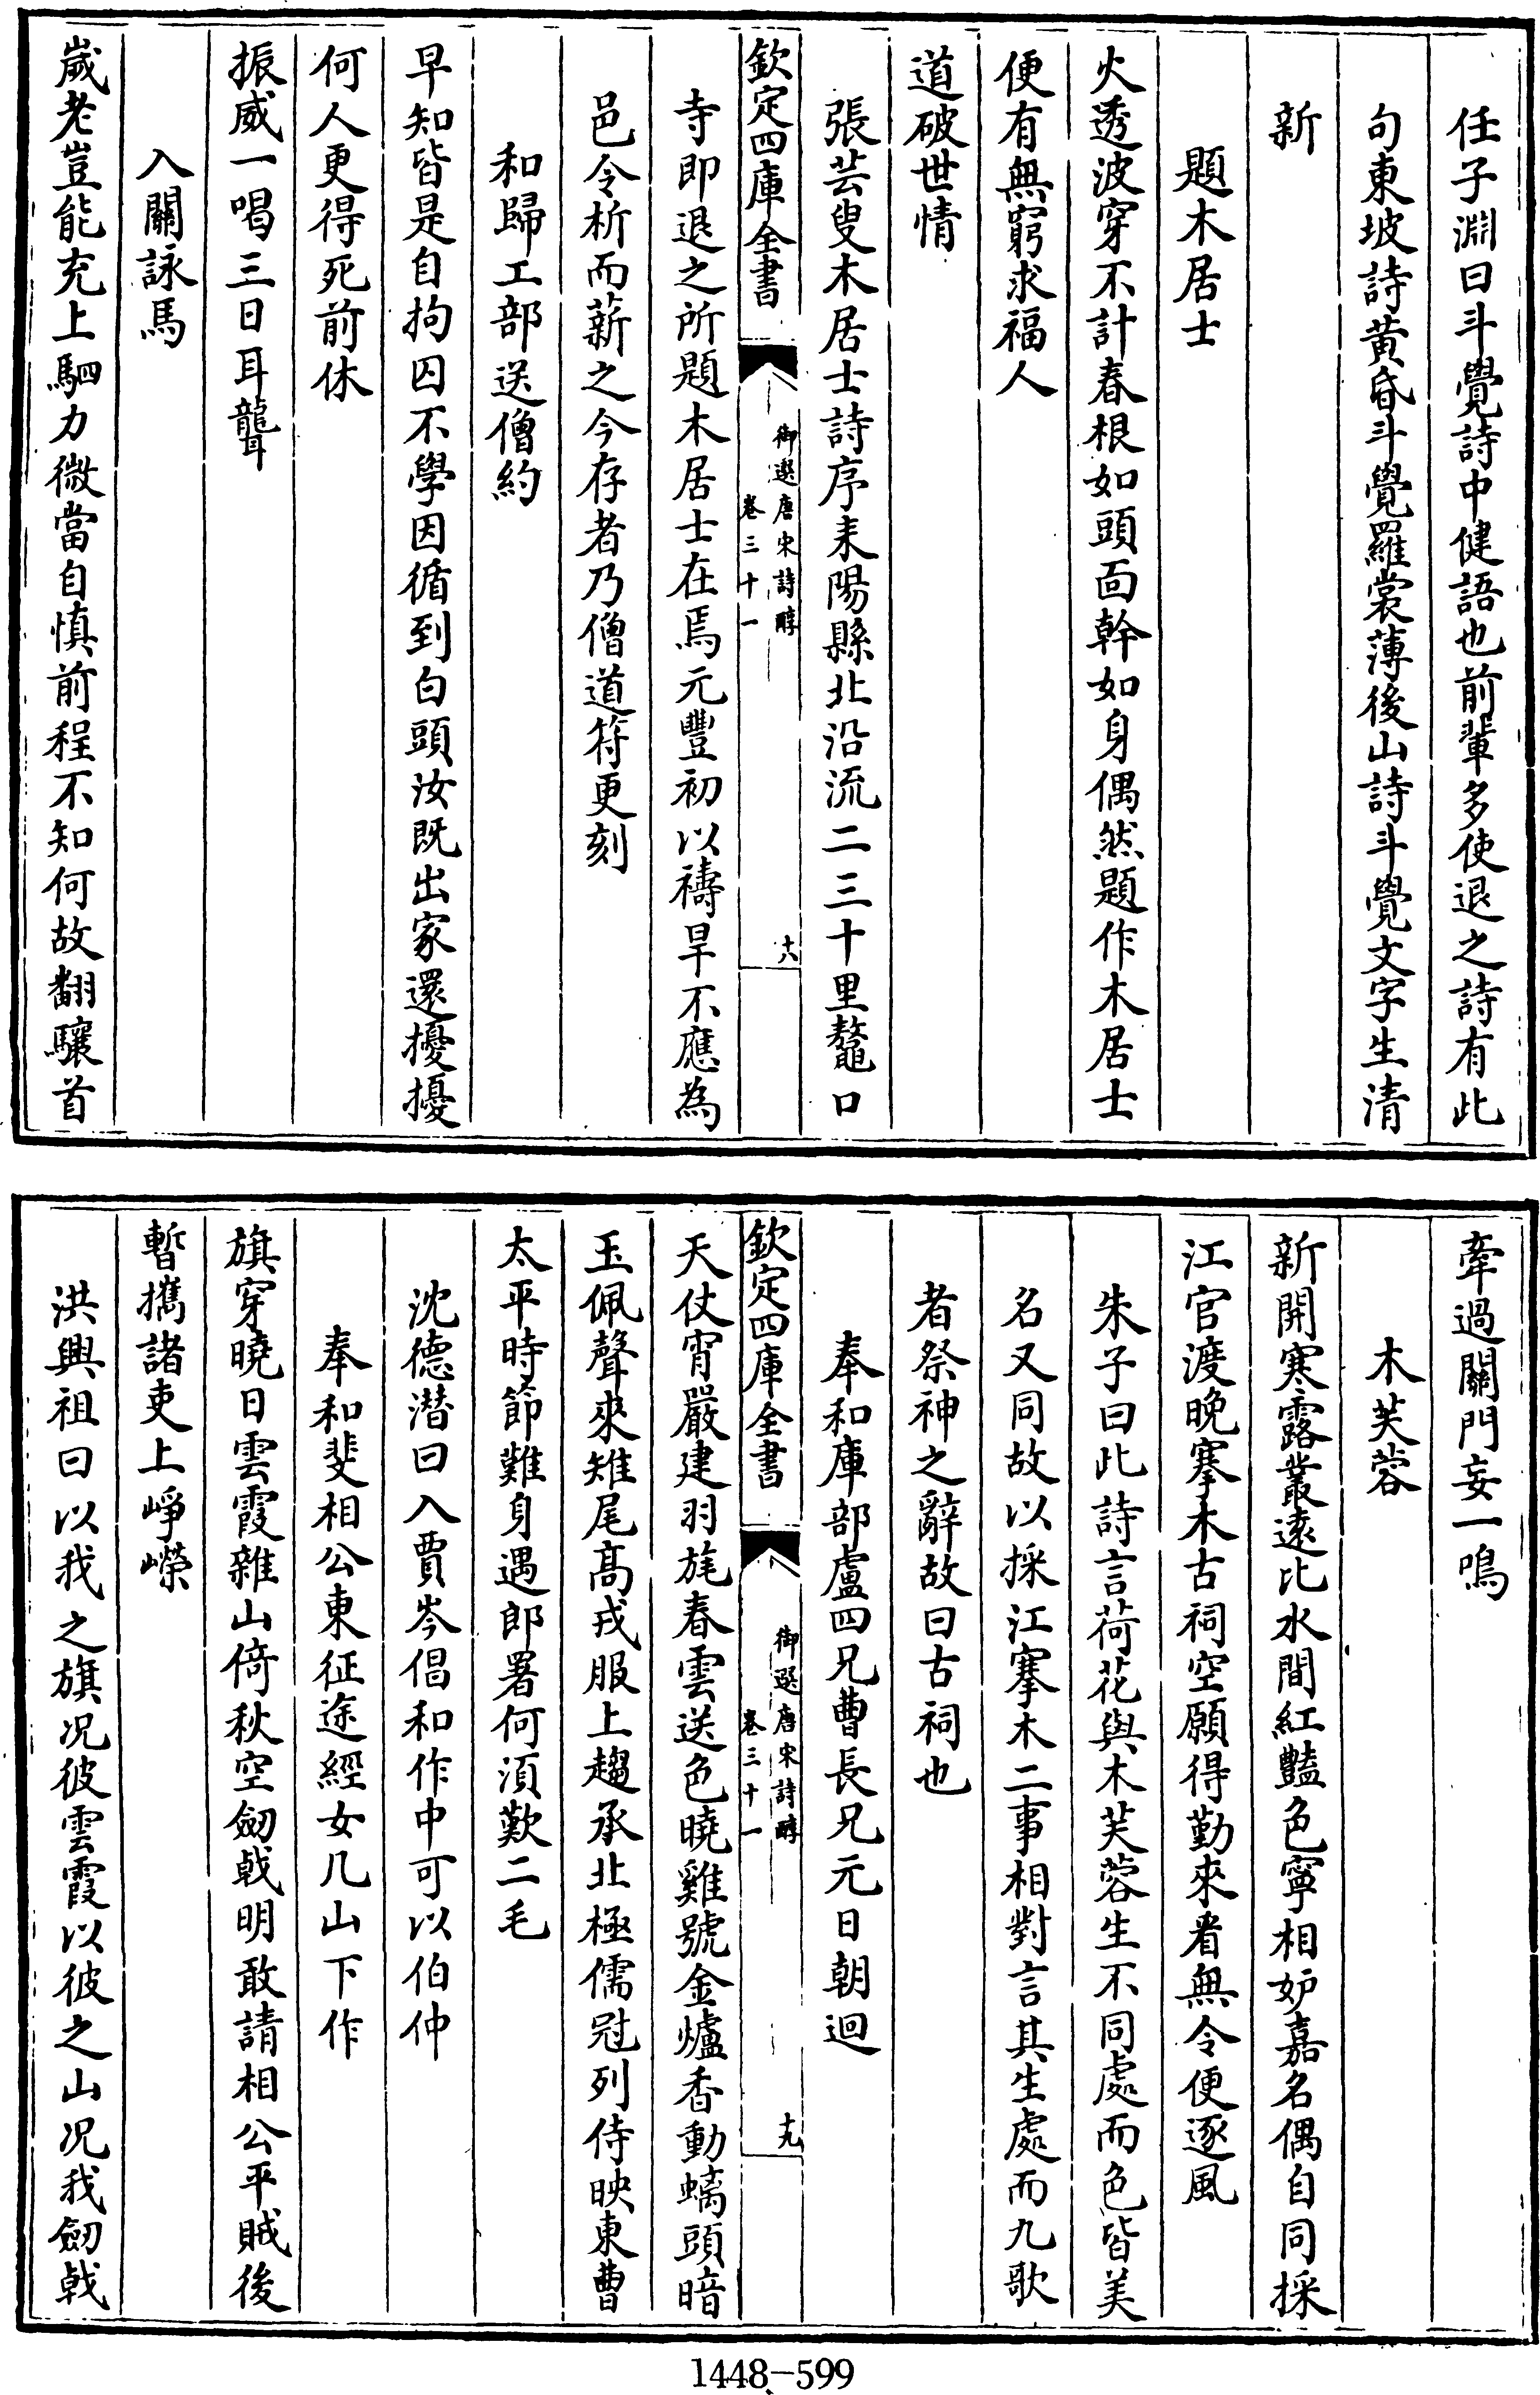 任子淵曰斗覺詩中健語也前輩多使退之詩有此
句東坡詩黄昏斗覺羅裳薄後山詩斗覺文字生清
新
題木居士
火透波穿不計春根如頭面幹如身偶然題作木居士
便有無窮求福人
道破世情
張芸叟木居士詩序耒陽縣北沿流二三十里鼇口
欽定四庫全書
御選唐宋詩醇
卷三十一
十八
寺即退之所題木居士在焉元豐初以禱旱不應為
邑令析而薪之今存者乃僧道符更刻
和歸工部送僧約
早知皆是自拘囚不學因循到白頭汝既出家還擾擾
何人更得死前休
振威一喝三日耳聾
入關詠馬
嵗老豈能充上駟力微當自慎前程不知何故翻驤首
牽過關門妄一鳴
木芙蓉
新開寒露叢遠比水間紅豔色寧相妒嘉名偶自同採
江官渡晚搴木古祠空願得勤來看無令便逐風
朱子曰此詩言荷花與木芙蓉生不同處而色皆美
名又同故以採江搴木二事相對言其生處而九歌
者祭神之辭故曰古祠也
奉和庫部盧四兄曹長兄元日朝迴
欽定四庫全書
御選唐宋詩醇
卷三十一
十九
天仗宵嚴建羽旄春雲送色曉雞號金爐香動螭頭暗
玉佩聲來雉尾髙戎服上趨承北極儒冠列侍映東曹
太平時節難身遇郎署何須歎二毛
沈德潛曰入賈岑倡和作中可以伯仲
奉和斐相公東征途經女几山下作
旗穿曉日雲霞雜山倚秋空劒戟明敢請相公平賊後
暫攜諸吏上崢嶸
洪興祖曰以我之旗况彼雲霞以彼之山况我劒戟
1448-599